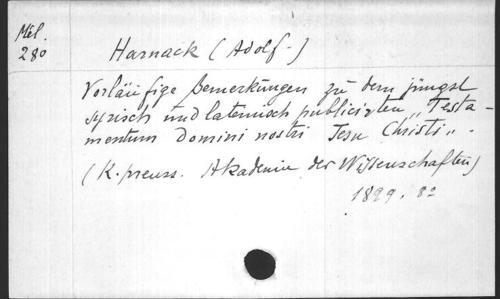 Mél.
280
Harnack (Adolf.)
Vorläufige Bemerkungen zu dem jüngst
syrisch und lateinisch publicirten „Testa-
mentum Domini nostri Jesu Christi".
(K. preuss. Akademie der Wissenschaften)
1899. 8º